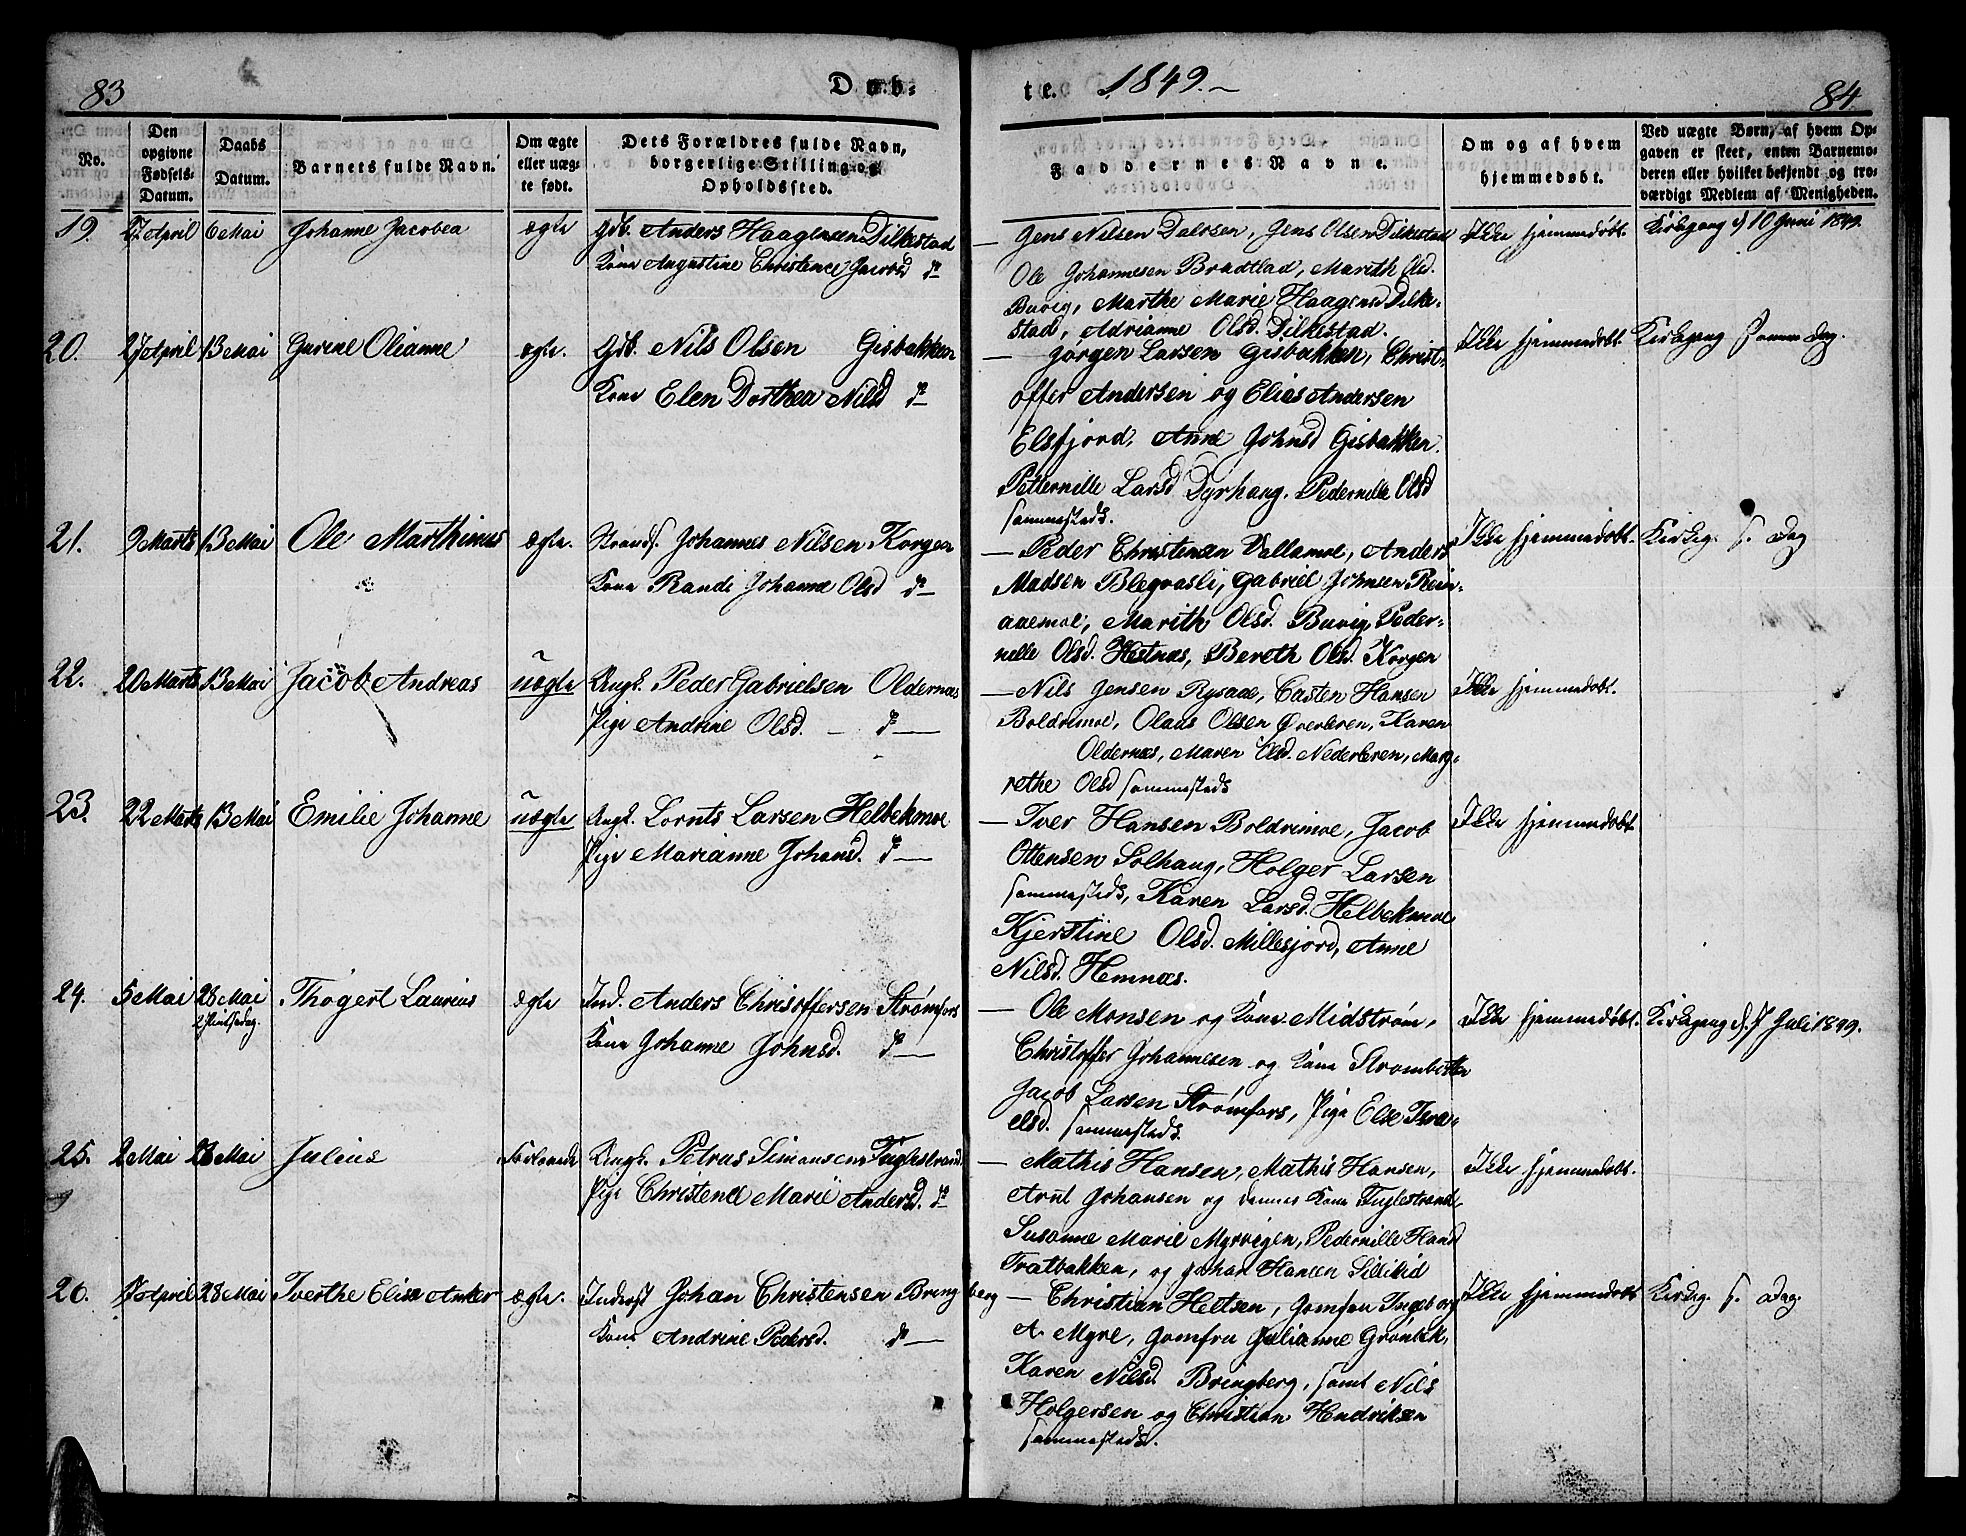 83
Døb-
te.
1849.
84.
No.
Den opgivne Fødsels-Datum.
Daabs Datum.
Barnets fulde Navn.
Om ægte eller uæg-te født.
Dets Forældres fulde Navn, borgerlige Stilling og Opholdssted.
Faddernes Navne.
Om og af hvem hjemmedøbt.
Ved uægte Børn, af hvem Op-gaven er skeet, enten Barnemo-deren eller hvilket bekjendt og tro-værdigt Medlem af Menigheden.
19. 17 April 6 Mai Johanne Jacobea ægte Gdb. Anders Haagensen Dilkestad
Kone Augustine Christence Jacobsd do
— Jens Nilsen Dalosen, Jens Olsen Dilkestad
Ole Johannesen Bradtlad, Marith Olsd.
Buvig, Marthe Marie Haagensd Dilke-
stad, Adrianne Olsd. Dilkestad.
Ikke hjemmedøbt. Kirkegang d 10 Juni 1849.
20. 27 April 13 Mai Gurine Olianne ægte. Gdb. Nils Olsen Gisbakken
Kone Elen Dorthea Nilsd do
— Jørgen Larsen Gisbakken, Christ-
offer Andersen og Elias Andersen
Elsfjord, Anne Johnsd Gisbakken.
Petternille Larsd Dyrhaug. Pedernille Olsd
sammesteds.
Ikke hjemmedøbt. Kirkegang samme Dag.
21. 9 Marts 13 Mai Ole Marthinus ægte. Strands. Johannes Nilsen Korgen
Kone Randi Johanne Olsd do
— Peder Christensen Vallamoe, Anders
Madsen Blegvasli, Gabriel Johnsen Rein-
aaemoe, Marith Olsd. Buvig, Peder-
nille Olsd. Hestnæs, Bereth Olsd. Korgen
Ikke hjemmedøbt. Kirkeg. s. Dag
22. 20 Marts 13 Mai Jacob Andreas uægte Ungk. Peder Gabrielsen Oldernæs
Pige Andrine Olsd. — do
— Nils Jensen Rysaae, Casten Hansen
Boldremoe, Olaus Olsen Øverleren, Karen
Oldernæs, Maren Olsd. Nederleren, Marg-
rethe Olsd sammesteds
Ikke hjemmedøbt.
23. 22 Marts 13 Mai Emilie Johanne uægte Ungk. Lornts Larsen Helbekmoe
Pige Marianne Johansd. do
— Iver Hansen Boldremoe, Jacob
Ottensen Solhaug, Holger Larsen
sammesteds, Karen Larsd. Helbekmoe
Kjerstine Olsd. Millesjord, Anne
Nilsd. Hemnæs.
Ikke hjemmedøbt
24. 5 Mai 28 Mai Thogert Laurius ægte Ind. Anders Chrisoffersen Strømfors
2 Pintsedag. Kone Johanne Johnsd. do
— Ole Monsen og Kone Midstrøm,
Christoffer Johannesen og Kone Strombotten
Jacob Larsen Strømfors, Pige Else Isra-
elsd. sammesteds.
Ikke hjemmedøbt. Kirkegang d. 7 Juli 1849.
25. 2 Mai 28 Mai Julius Forlovede Ungk. Petrus Simonsen Fuglestrand
Pige Christence Marie Andersd. do
— Mathis Hansen, Mathis Hansen,
Arnt Johansen og dennes Kone Fuglestrand
Susanne Marie Myrvigen, Pedernille Hansd
Tratbakken, og Johan Hansen Sillikid
Ikke hjemmedøbt.
26. 17 April 28 Mai Tverthe Elisa Anker ægte. Inderst Johan Christensen Bring berg
Kone Andrine Pedersd. do
— Christian Heltsen, Jomfru Ingeborg
A. Myre, Jomfru Julianne Grønbek,
Karen Nilsd. Bringberg, samt Nils
Holgersen og Christian Hendriksen
sammesteds.
Ikke hjemmedøbt Kirkeg. s. Dag.